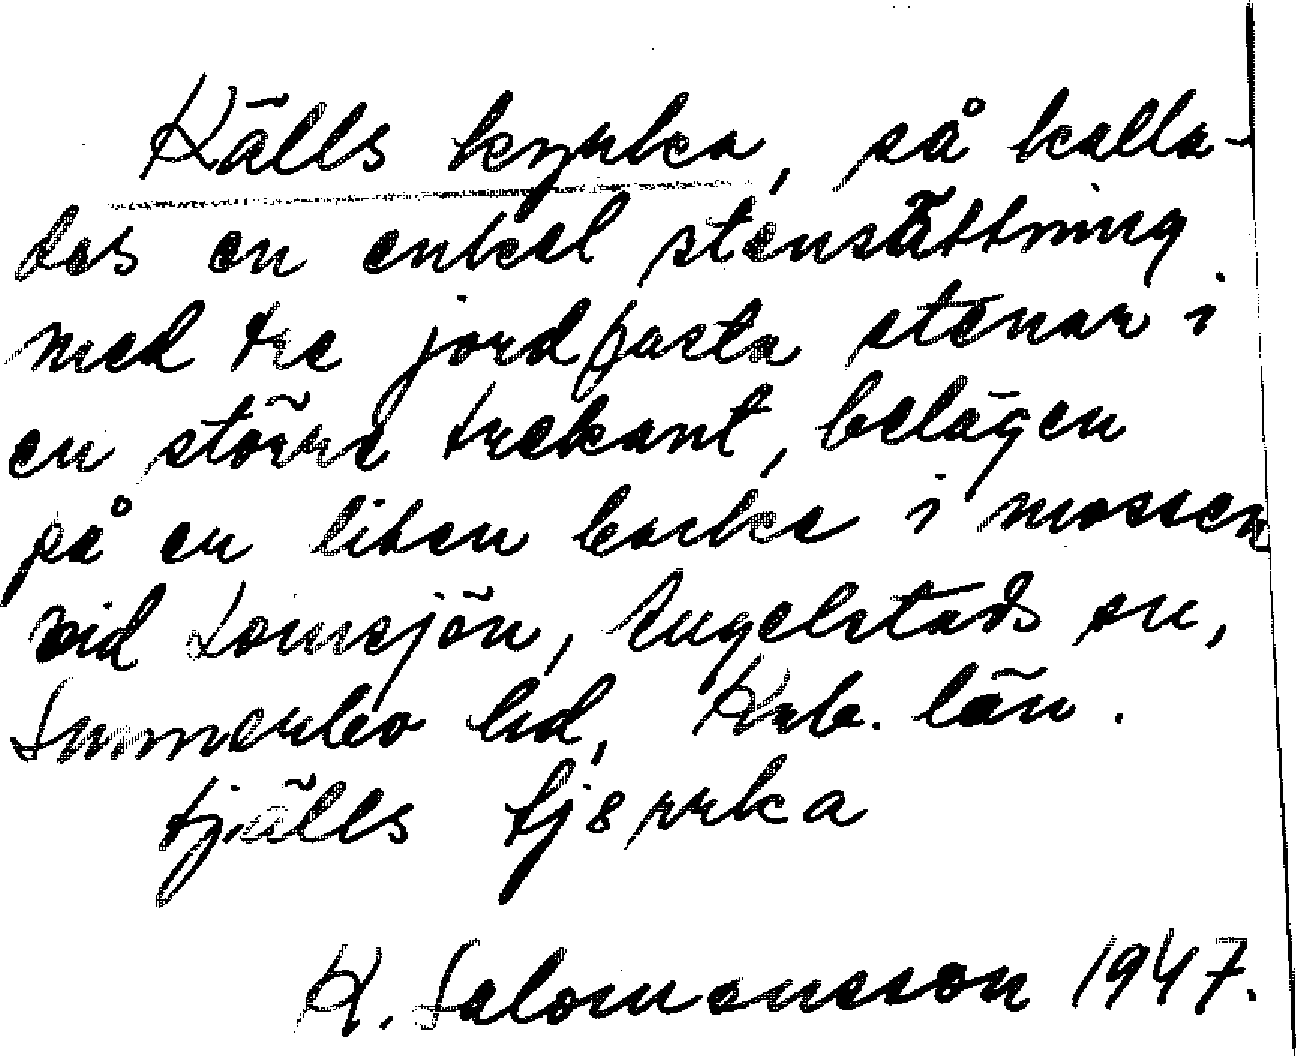 Källs kyrka, så kalla-
des en enkel stensättning
med tre jordfasta stenar i
en större trekant, belägen
på en liten backe i mossen
vid Lomsjön, Engelstads sn,
Sunnerbo hd, Krb. län.
tjälls tjsrrka
K. Salomonsson 1947.